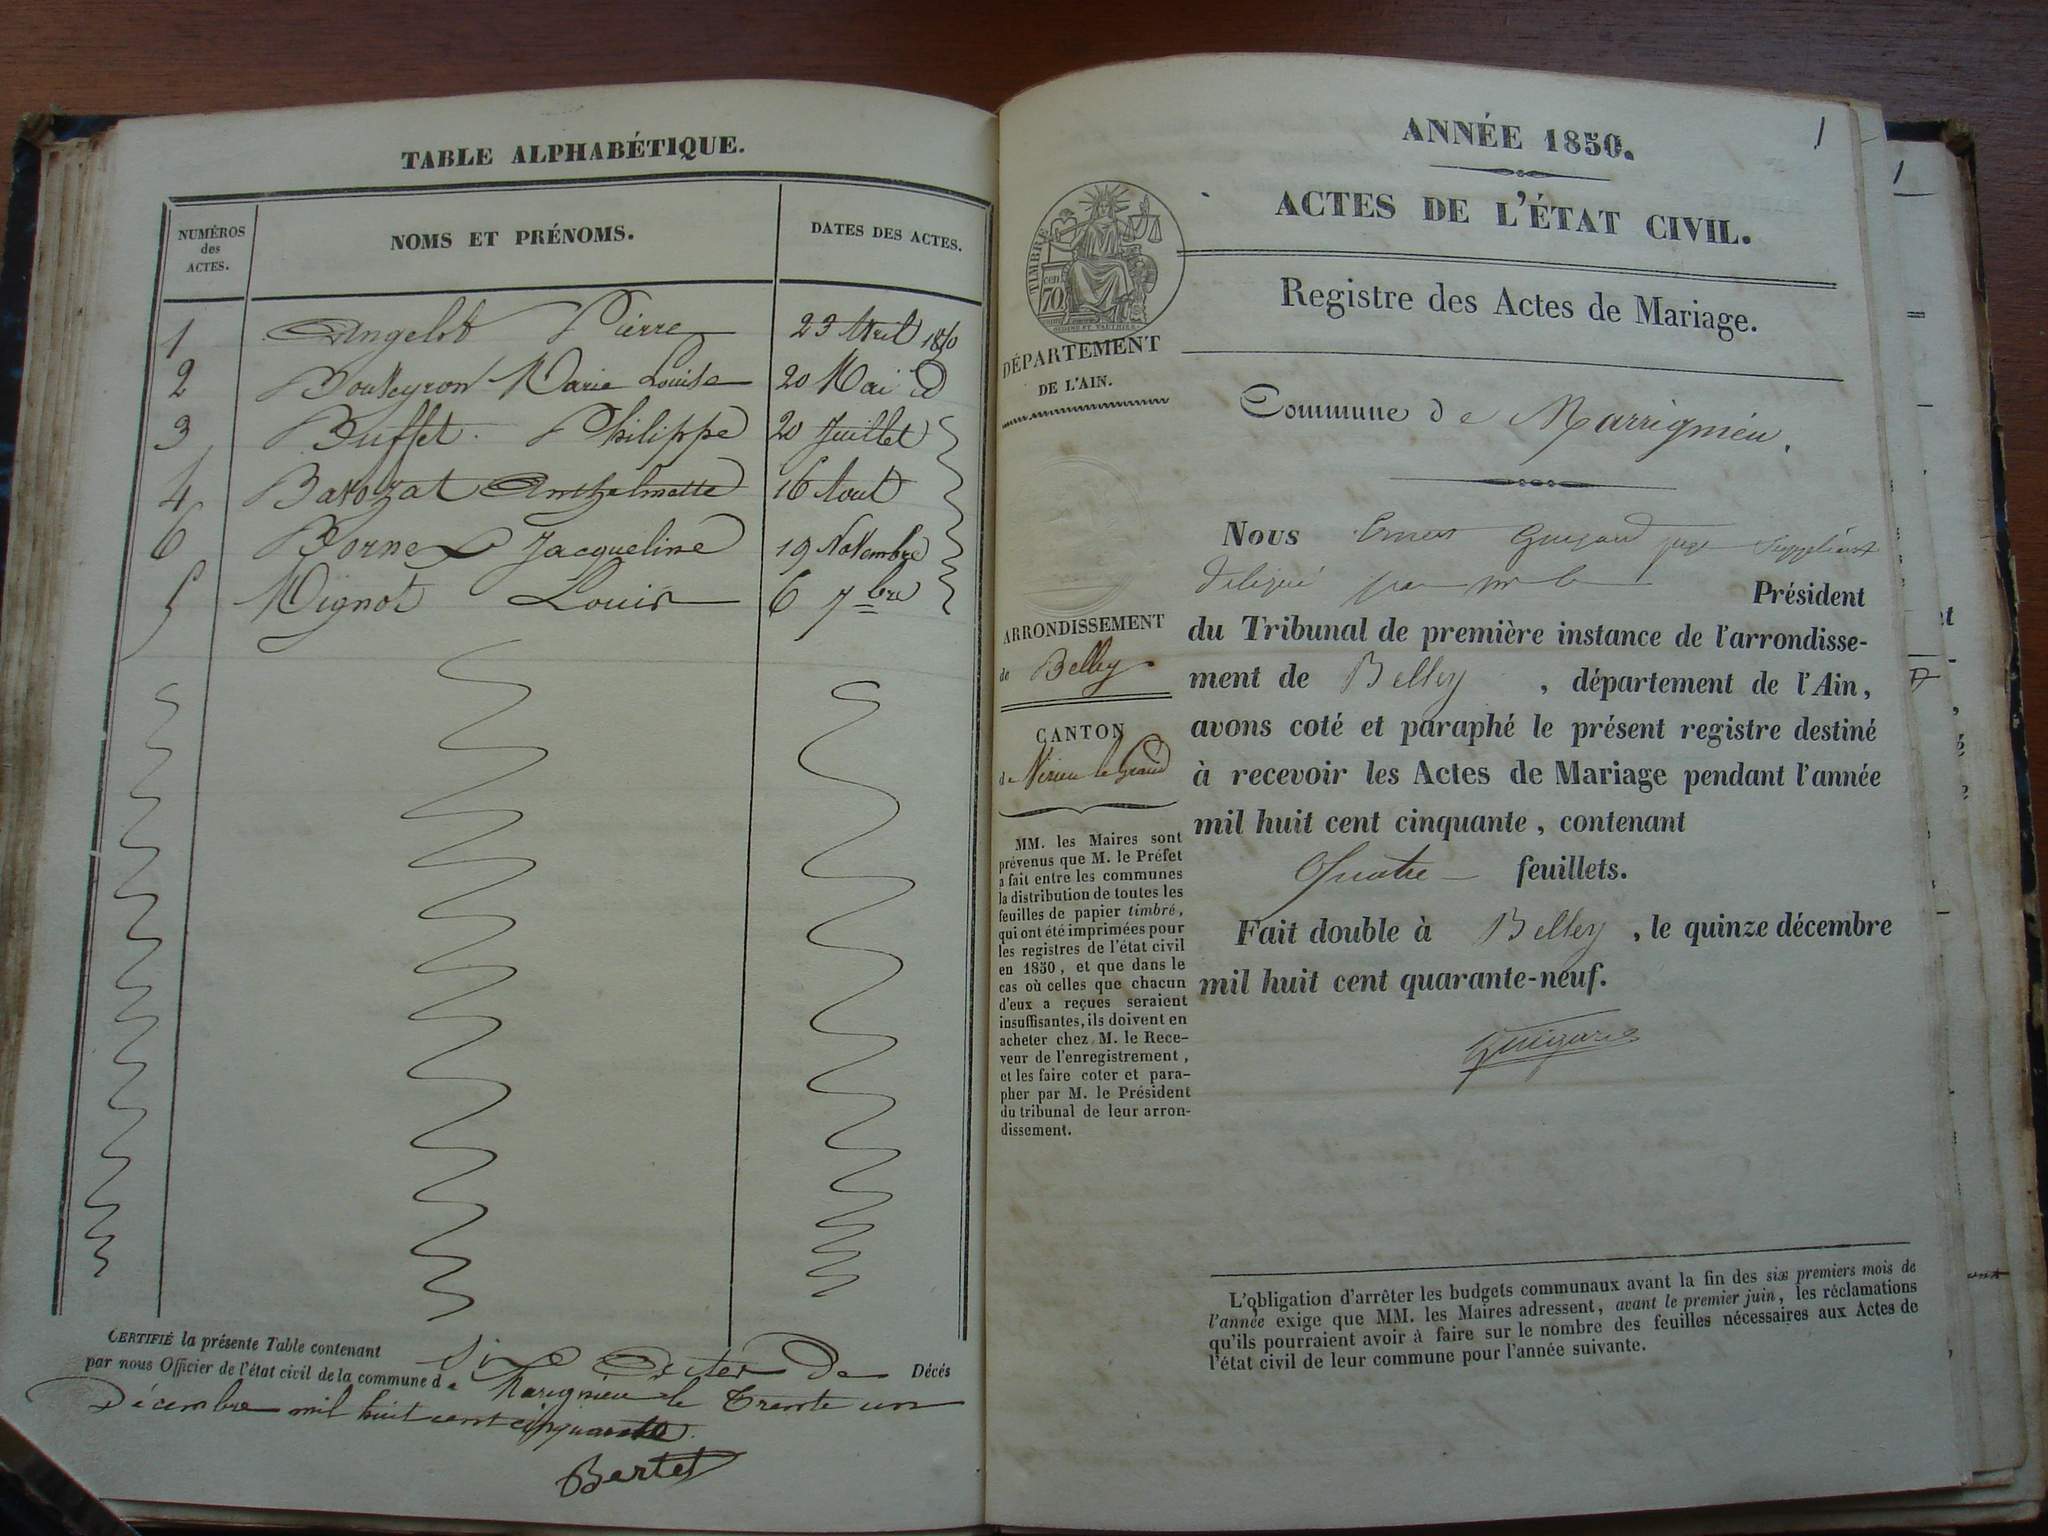 TABLE ALPHABÉTIQUE.
NUMÉROS des ACTES. NOMS ET PRÉNOMS. DATES DES ACTES.
1 Angelot Pierre 23 Avril 1850
2 Bouveyron Marie Louise 20 Mai id
3 Buffet Philippe 20 Juillet
4 Barozat Anthelmette 16 Aout
6 Borne Jacqueline 19 Novembre
5 Mignot Louis 6 7bre
CERTIFIÉ la présente Table contenant Six Actes De Décés
par nous Officier de l'état civil de la commune de Marignieu le Trente un
Décembre mil huit cent cinquante
Bertet
1
ANNÉE 1850.
ACTES DE L'ÉTAT CIVIL.
Registre des Actes de Mariage.
TIMBRE
70
DÉPARTEMENT
DE L'AIN.
Commune de Marrignieu.
Nous Ernest Guigard juge Suppléant
délégué par mr le Président
du Tribunal de première instance de l'arrondisse-
ment de Belley, département de l'Ain,
avons coté et paraphé le présent registre destiné
à recevoir les Actes de Mariage pendant l'année
mil huit cent cinquante, contenant
Quatre feuillets.
Fait double à Belley, le quinze décembre
mil huit cent quarante-neuf.
Guigard
ARRONDISSEMENT
de Belley
CANTON
de Virieu le Grand
MM. les Maires sont
prévenus que M. le Préfet
a fait entre les communes
la distribution de toutes les
feuilles de papier timbré,
qui ont été imprimées pour
les registres de l'état civil
en 1850, et que dans le
cas où celles que chacun
d'eux a reçues seraient
insuffisantes, ils doivent en
acheter chez M. le Rece-
veur de l'enregistrement,
et les faire coter et para-
pher par M. le Président
du tribunal de leur arron-
dissement.
L'obligation d'arrêter les budgets communaux avant la fin des six premiers mois de
l'année exige que MM. les Maires adressent, avant le premier juin, les réclamations
qu'ils pourraient avoir à faire sur le nombre des feuilles nécessaires aux Actes de
l'état civil de leur commune pour l'année suivante.
1